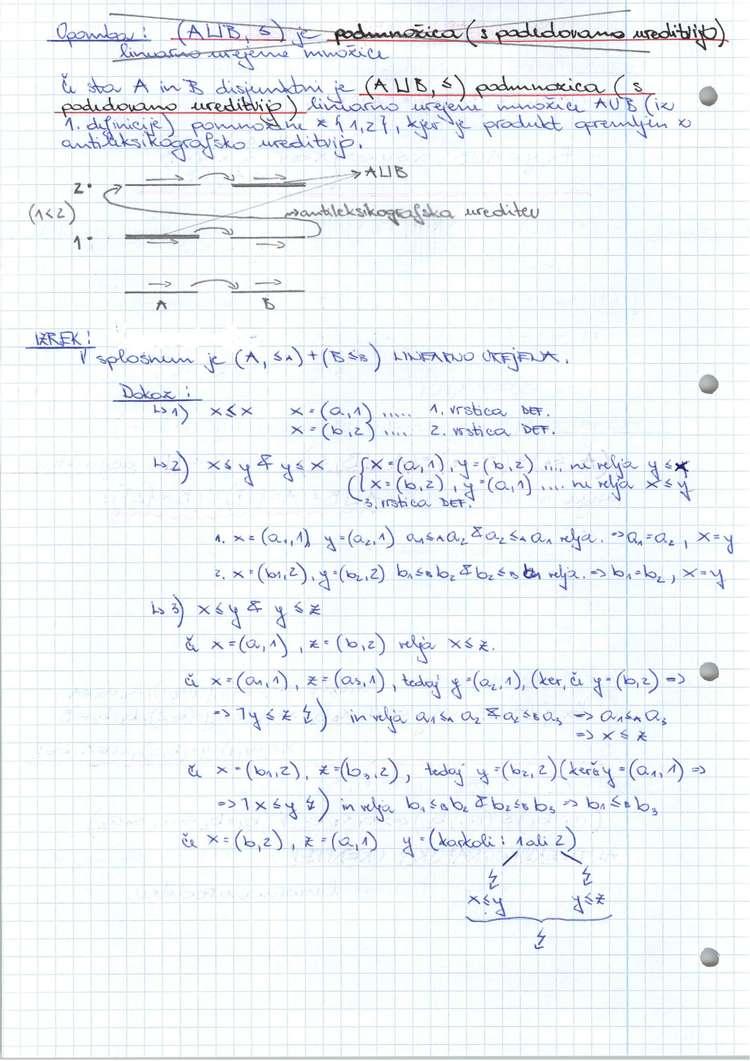 Opomba: (A⊔B, ≤) je podmnožica (s podedovano ureditvijo)
linearno urejene množice
Če sta A in B disjunktni je (A⊔B, ≤) podmnožica (s
podedovano ureditvijo) linearno urejene množice A∪B (iz
1. definicije) pomnožene × {1,2}, kjer je produkt opremljen z
antileksikografsko ureditvijo.
2. → A⊔B
(1<2) → antileksikografska ureditev
1.
A B
IZREK:
V splošnem je (A, ≤A)+(B ≤B) LINEARNO UREJENA.
Dokaz:
↳ 1) x≤x x=(a,1) ..... 1. vrstica DEF.
x=(b,2) .... 2. vrstica DEF.
↳ 2) x≤y & y≤x {x=(a,1), y=(b,2) ... ne velja y≤x
{x=(b,2), y=(a,1) .... ne velja x≤y
3. vrstica DEF.
1. x=(a₁,1) y=(a₂,1) a₁≤A a₂ & a₂≤A a₁ velja. ⇒ a₁=a₂, x=y
2. x=(b₁,2), y=(b₂,2) b₁≤B b₂ & b₂≤B b₁ velja. ⇒ b₁=b₂, x=y
↳ 3) x≤y & y≤z
če x=(a,1), z=(b,2) velja x≤z.
če x=(a₁,1), z=(a₃,1), tedaj y=(a₂,1), (ker, če y=(b,2) ⇒
⇒ ¬y≤z ↯) in velja a₁≤A a₂ & a₂≤B a₃ ⇒ a₁≤A a₃
⇒ x≤z
če x=(b₁,2), z=(b₃,2), tedaj y=(b₂,2) (ker če y=(a₁,1) ⇒
⇒ ¬x≤y ↯) in velja b₁≤B b₂ & b₂≤B b₃ ⇒ b₁≤B b₃
če x=(b,2), z=(a,1) y=(karkoli: 1 ali 2)
↯ ↯
x≤y y≤z
↯